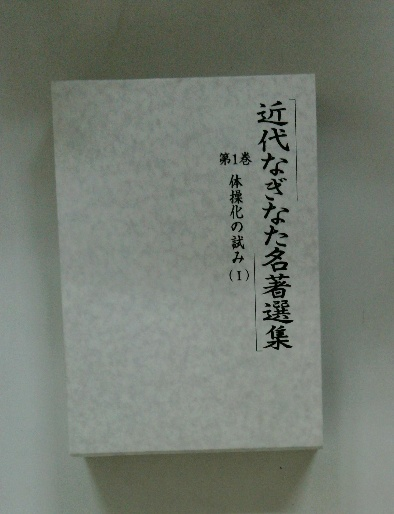 近代なぎなた名著選集
第1巻
体操化の試み(I)